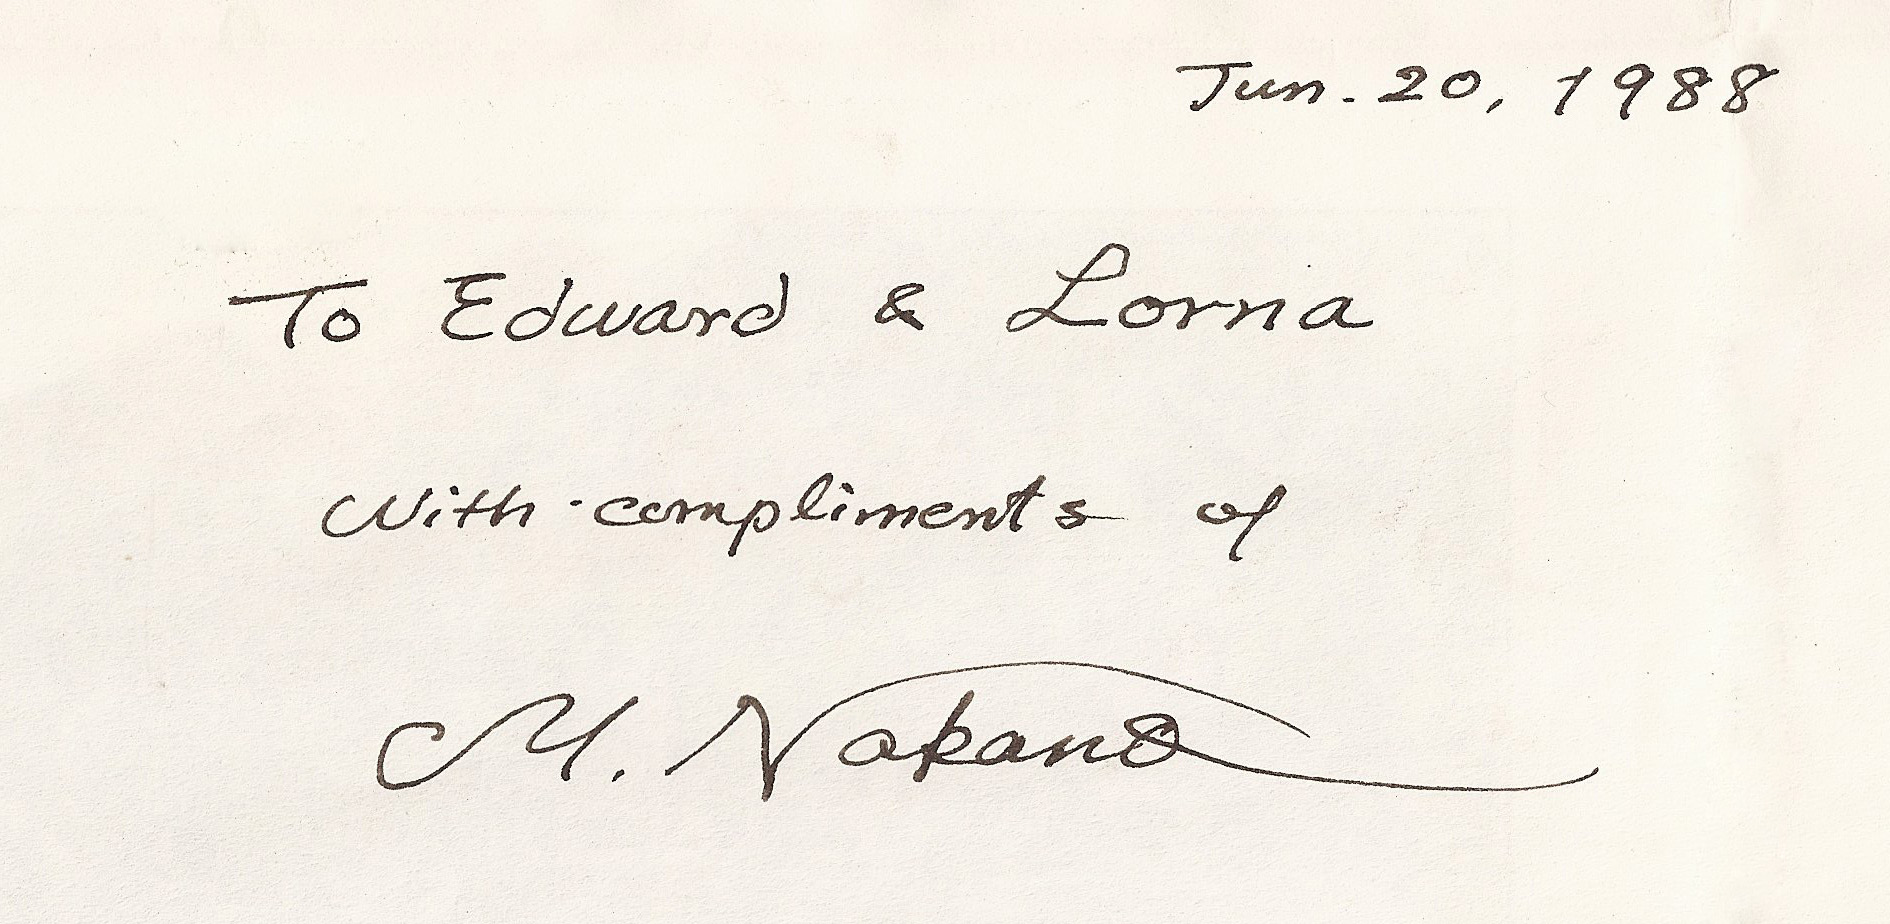 Jun. 20, 1988
To Edward & Lorna
With compliments of
M. Nakano